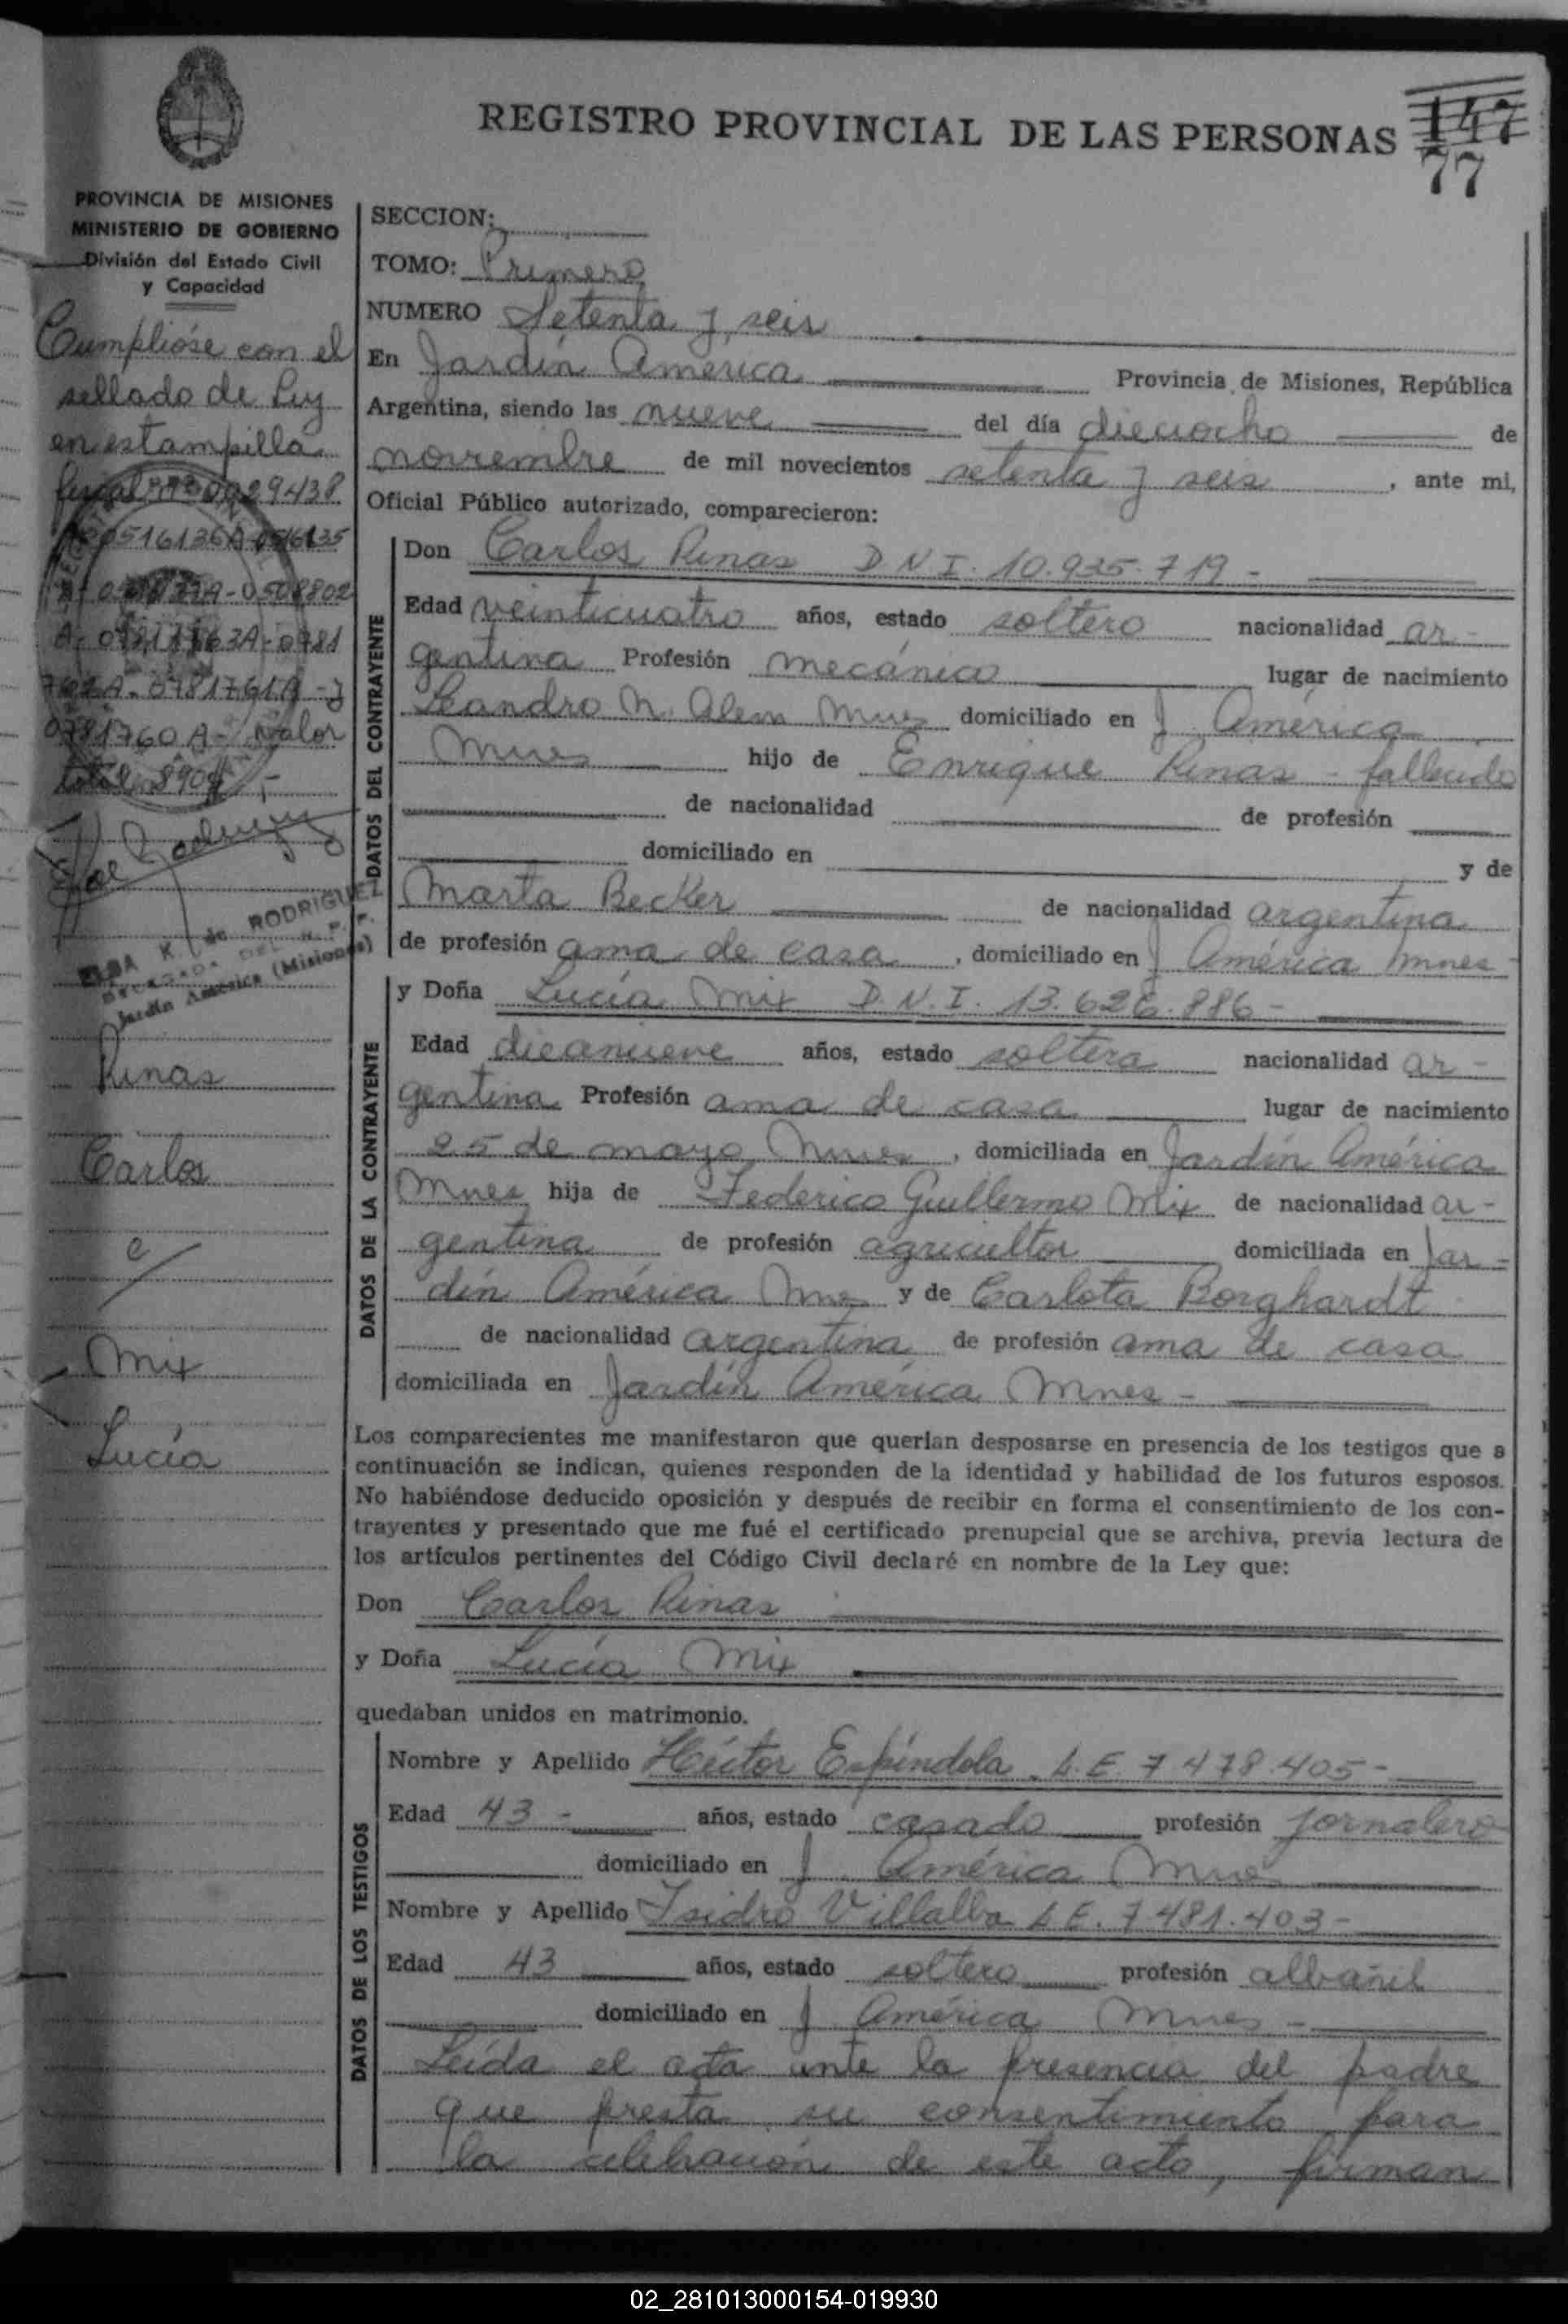 REGISTRO PROVINCIAL DE LAS PERSONAS 147
77
PROVINCIA DE MISIONES
MINISTERIO DE GOBIERNO
División del Estado Civil
y Capacidad
Cumplióse con el
sellado de Ley
en estampilla
fiscal Nº 0029438
0516136A-0516135
A-0508802
A-0781763A-0781
762A-0781761A-y
0781760A- valor
total 890$-
ELBA K. de RODRIGUEZ
DELEGADA DEL R. P. P.
Jardín América (Misiones)
Rinas
Carlos
c/
Mix
Lucía
SECCION:
TOMO: Primero
NUMERO Setenta y seis
En Jardín América Provincia de Misiones, República
Argentina, siendo las nueve del día dieciocho de
noviembre de mil novecientos setenta y seis, ante mi,
Oficial Público autorizado, comparecieron:
DATOS DEL CONTRAYENTE
Don Carlos Rinas D.N.I. 10.935.719-
Edad veinticuatro años, estado soltero nacionalidad ar-
gentina Profesión mecánico lugar de nacimiento
Leandro N. Alem Mnes domiciliado en J América
Mnes hijo de Enrique Rinas - fallecido
de nacionalidad de profesión
domiciliado en y de
Marta Becker de nacionalidad argentina
de profesión ama de casa, domiciliado en J América Mnes-
DATOS DE LA CONTRAYENTE
y Doña Lucía Mix D.N.I. 13.626.886-
Edad diecinueve años, estado soltera nacionalidad ar-
gentina Profesión ama de casa lugar de nacimiento
25 de mayo Mnes, domiciliada en Jardín América
Mnes hija de Federico Guillermo Mix de nacionalidad ar-
gentina de profesión agricultor domiciliada en Jar-
dín América Mnes y de Carlota Borghardt
de nacionalidad argentina de profesión ama de casa
domiciliada en Jardín América Mnes-
Los comparecientes me manifestaron que querían desposarse en presencia de los testigos que a
continuación se indican, quienes responden de la identidad y habilidad de los futuros esposos.
No habiéndose deducido oposición y después de recibir en forma el consentimiento de los con-
trayentes y presentado que me fué el certificado prenupcial que se archiva, previa lectura de
los artículos pertinentes del Código Civil declaré en nombre de la Ley que:
Don Carlos Rinas
y Doña Lucía Mix
quedaban unidos en matrimonio.
DATOS DE LOS TESTIGOS
Nombre y Apellido Héctor Espíndola L.E. 7 478.405-
Edad 43- años, estado casado profesión jornalero
domiciliado en J América Mnes
Nombre y Apellido Isidro Villalba L.E. 7 481.403-
Edad 43 años, estado soltero profesión albañil
domiciliado en J América Mnes-
Leída el acta ante la presencia del padre
que presta su consentimiento para
la celebración de este acto, firman
02_281013000154-019930